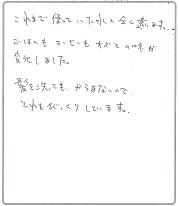 これまで使っていた水と全く違います。
ごはんもコーヒーもすべての味が
変化しました。
髪を洗っても、からまないので、
とてもびっくりしています。